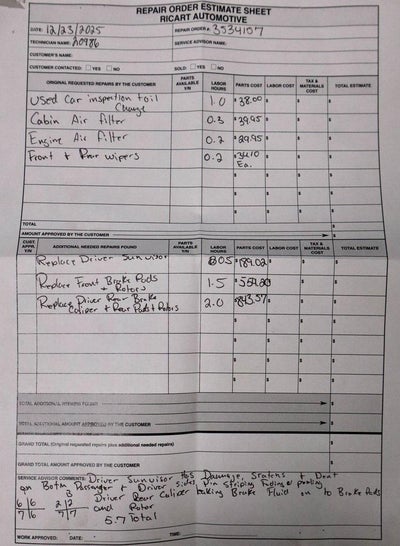 REPAIR ORDER ESTIMATE SHEET
RICART AUTOMOTIVE
DATE: 12/23/2025 REPAIR ORDER #: 3534107
TECHNICIAN NAME: 20986 SERVICE ADVISOR NAME:
CUSTOMER'S NAME:
CUSTOMER CONTACTED: YES NO SOLD: YES NO
ORIGINAL REQUESTED REPAIRS BY THE CUSTOMER PARTS AVAILABLE Y/N LABOR HOURS PARTS COST LABOR COST TAX & MATERIALS COST TOTAL ESTIMATE
Used Car inspection + oil Change 1.0 $ 38.00 $ $ $
Cabin Air filter 0.3 $ 39.95 $ $ $
Engine Air filter 0.2 $ 29.95 $ $ $
Front + Rear wipers 0.2 $ 34.10 Ea. $ $ $
TOTAL $
AMOUNT APPROVED BY THE CUSTOMER $
CUST. APPR. Y/N ADDITIONAL NEEDED REPAIRS FOUND PARTS AVAILABLE Y/N LABOR HOURS PARTS COST LABOR COST TAX & MATERIALS COST TOTAL ESTIMATE
Replace Driver Sunvisor 0.5 $ 189.02 $ $ $
Replace Front Brake Pads + Rotors 1.5 $ $ $ $
Replace Driver Rear Brake Caliper + Rear Pads + Rotors 2.0 $ 843.57 $ $ $
TOTAL ADDITIONAL REPAIRS FOUND $
TOTAL ADDITIONAL AMOUNT APPROVED BY THE CUSTOMER $
GRAND TOTAL (Original requested repairs plus additional needed repairs) $
GRAND TOTAL AMOUNT APPROVED BY THE CUSTOMER $
SERVICE ADVISOR COMMENTS: Driver Sunvisor has Damage, Sratchs + Dent
on Both Passenger + Driver sides, Pin striping Fading + peeling
6/6 2/2 Driver Rear Caliper leaking Brake Fluid on to Brake Pads
7/6 7/7 and Rotor
5.7 Total
WORK APPROVED: DATE: TIME: